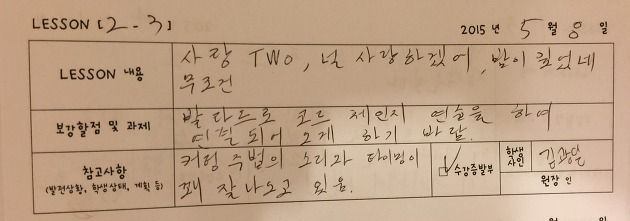 LESSON [2-3] 2015년 5월 8일
LESSON 내용
사랑 TWO, 널 사랑하겠어, 밤이 깊었네
무조건
보강할점 및 과제
발라드로 코드 체인지 연습을 하여
연결되어 오게 하기 바람.
참고사항
(발전상황, 학생상태, 계획 등)
커팅 주법의 소리와 타이밍이
꽤 잘 나오고 있음.
수강증발부
학생
사인
원장 인